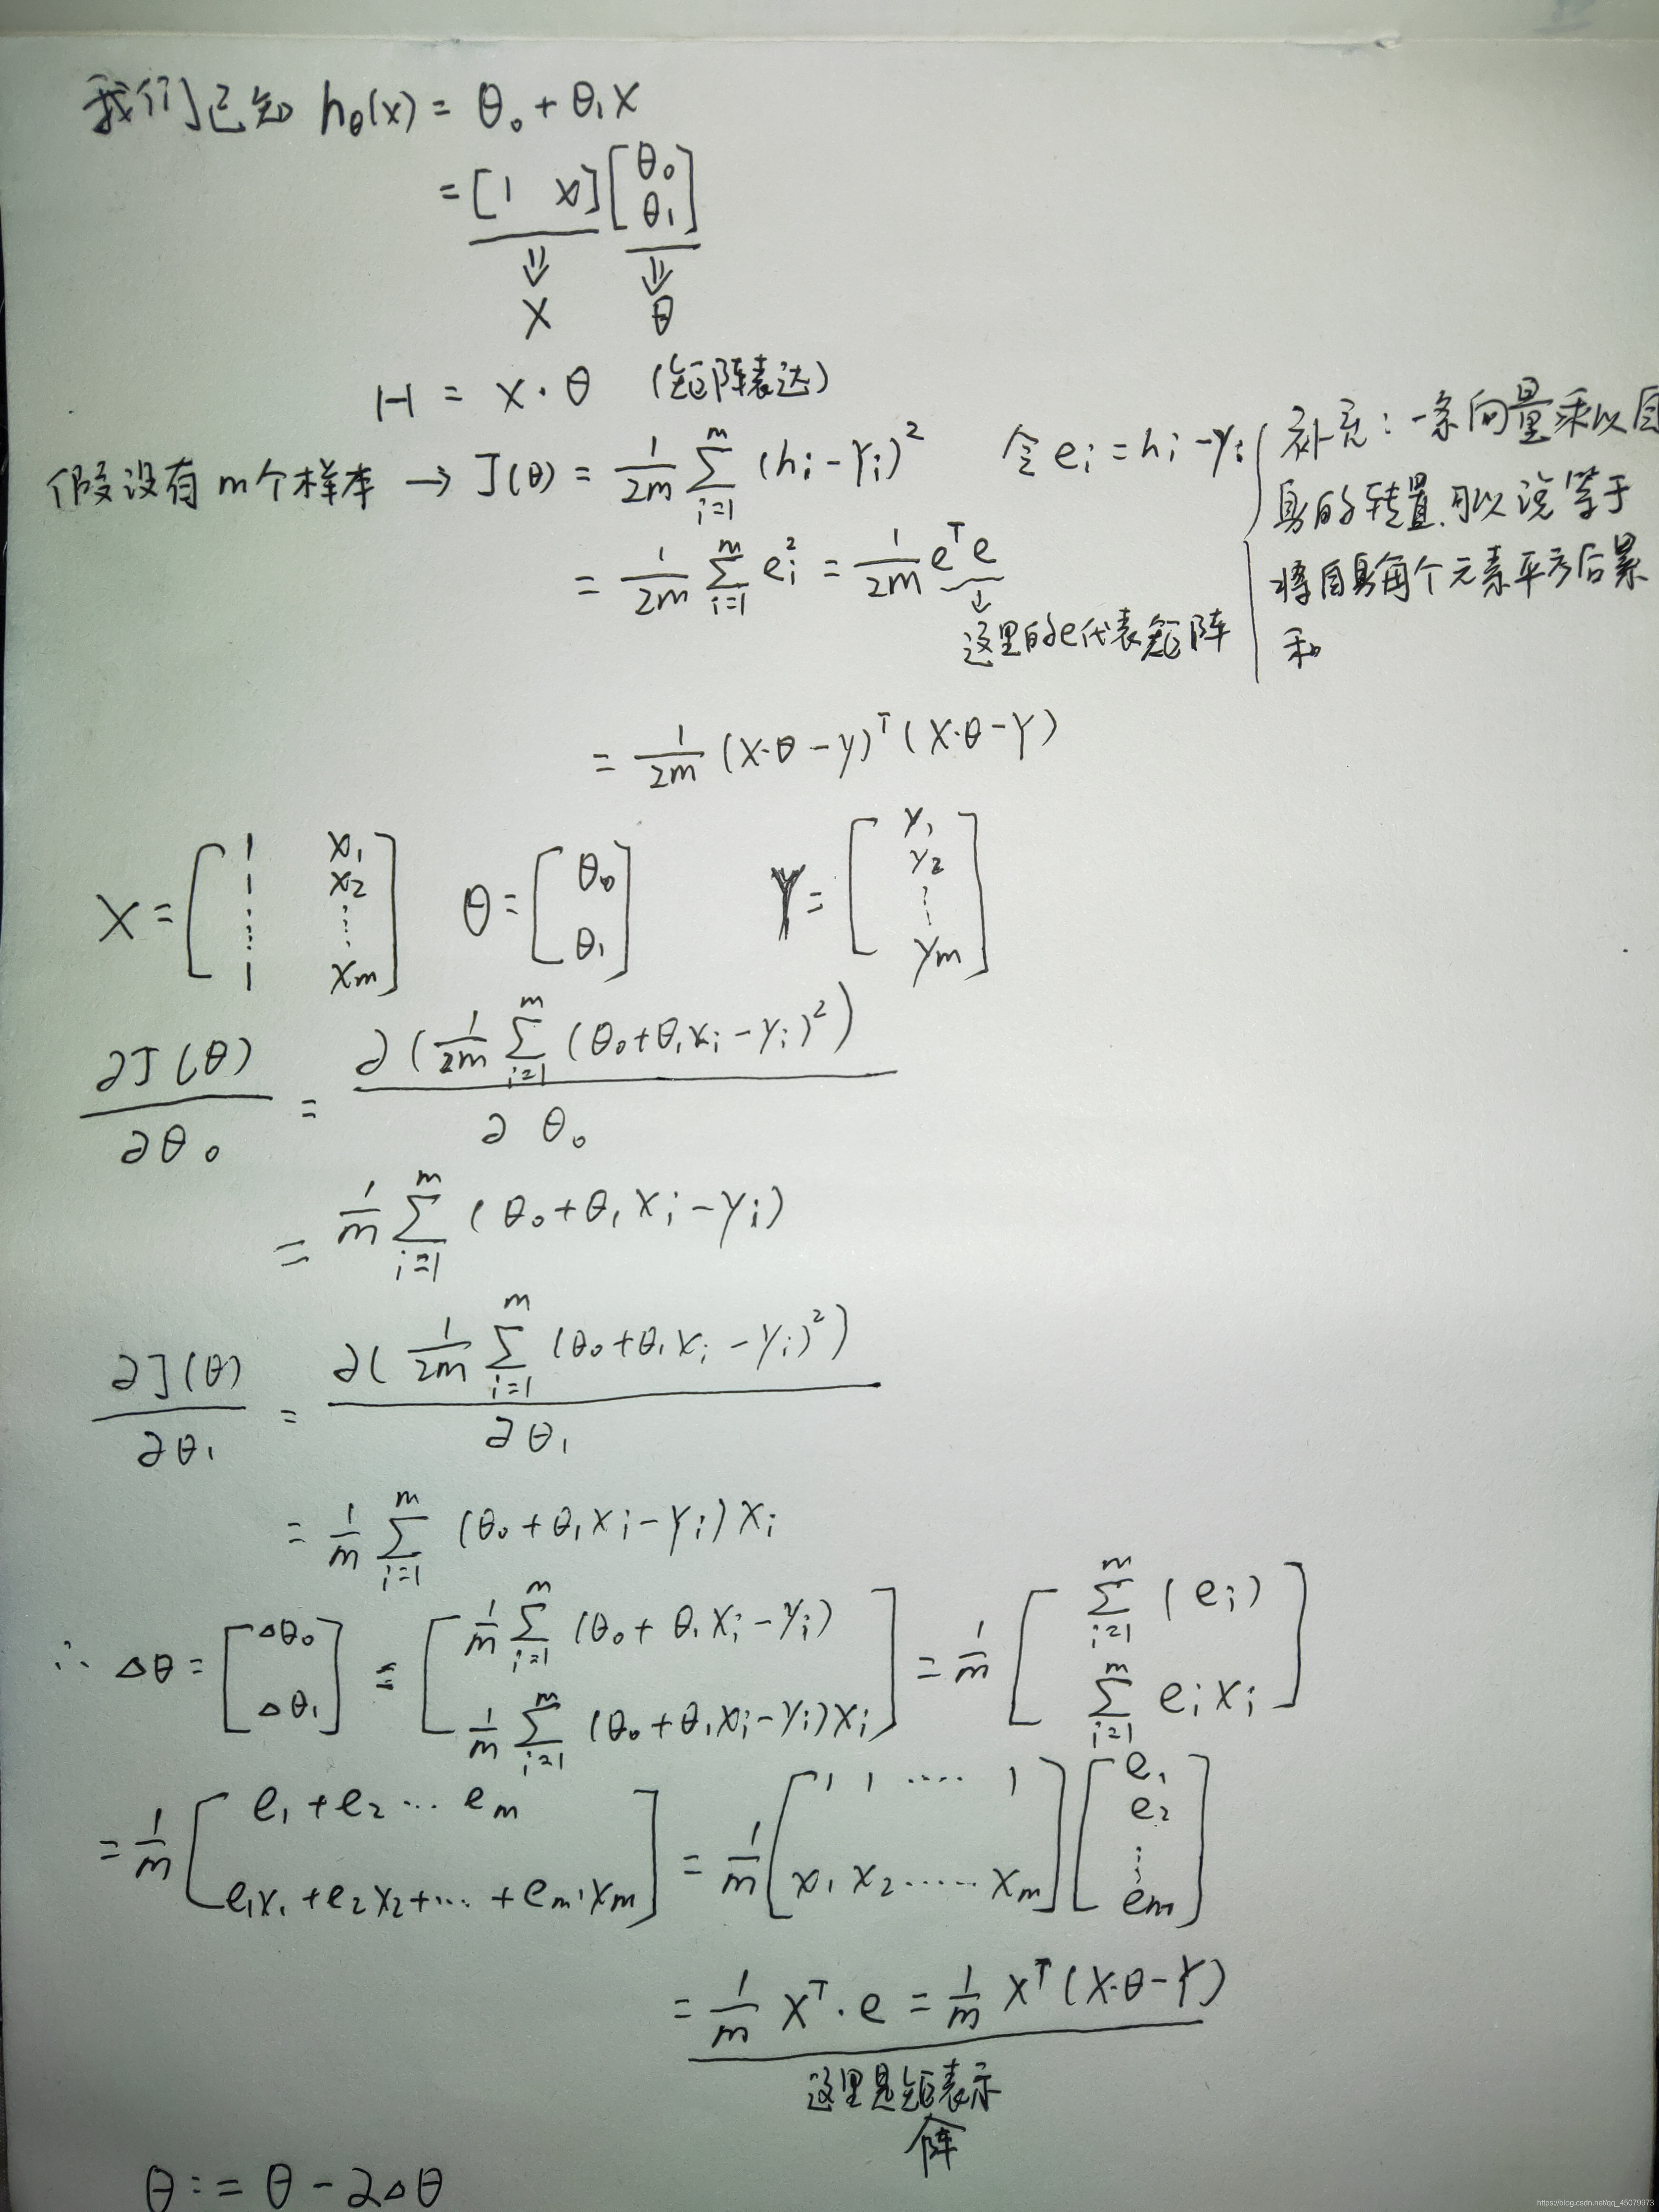 我们已知 hθ(x) = θ₀ + θ₁x
= [1 x] [θ₀ θ₁]
⇓ ⇓
X θ
H = X·θ (矩阵表达)
假设有m个样本 → J(θ) = 1/2m ∑_{i=1}^{m} (hᵢ - yᵢ)² 令 eᵢ = hᵢ - yᵢ
= 1/2m ∑_{i=1}^{m} eᵢ² = 1/2m eᵀe
↓
这里的e代表矩阵
补充: 一条向量乘以自
身的转置,可以说等于
将自身每个元素平方后累
和
= 1/2m (X·θ - y)ᵀ (X·θ - Y)
X = [1 x₁; 1 x₂; ⋮ ⋮; 1 xm] θ = [θ₀; θ₁] Y = [y₁; y₂; ⋮; ym]
∂J(θ)/∂θ₀ = ∂(1/2m ∑_{i=1}^{m} (θ₀+θ₁xᵢ-yᵢ)²)/∂θ₀
= 1/m ∑_{i=1}^{m} (θ₀+θ₁xᵢ-yᵢ)
∂J(θ)/∂θ₁ = ∂(1/2m ∑_{i=1}^{m} (θ₀+θ₁xᵢ-yᵢ)²)/∂θ₁
= 1/m ∑_{i=1}^{m} (θ₀+θ₁xᵢ-yᵢ)xᵢ
∴ Δθ = [Δθ₀; Δθ₁] = [1/m ∑_{i=1}^{m} (θ₀+θ₁xᵢ-yᵢ); 1/m ∑_{i=1}^{m} (θ₀+θ₁xᵢ-yᵢ)xᵢ] = 1/m [∑_{i=1}^{m} (eᵢ); ∑_{i=1}^{m} eᵢxᵢ]
= 1/m [e₁+e₂…em; e₁x₁+e₂x₂+…+em·xm] = 1/m [1 1 …… 1; x₁ x₂ …… xm] [e₁; e₂; ⋮; em]
= 1/m Xᵀ·e = 1/m Xᵀ(X·θ-Y)
这里是矩阵表示
θ := θ - 2Δθ
https://blog.csdn.net/qq_45079973